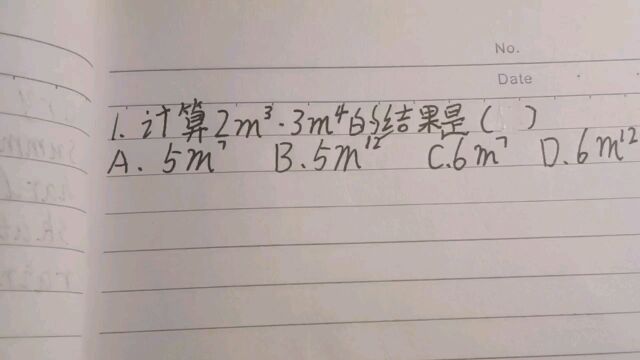 No.
Date
1. 计算2m³·3m⁴的结果是( )
A. 5m⁷ B. 5m¹² C. 6m⁷ D. 6m¹²